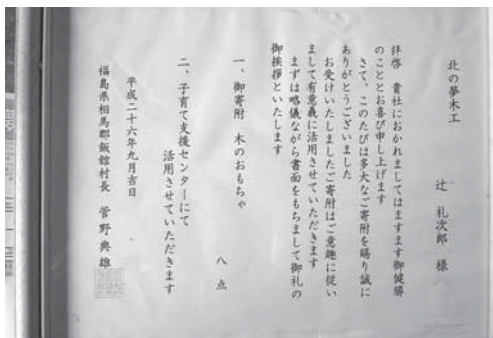 北の夢木工
辻 礼次郎 様
拝啓 貴社におかれましてはますます御健勝
のこととお喜び申し上げます
さて、このたびは多大なご寄附を賜り誠に
ありがとうございました
お受けいたしましたご寄附はご意趣に従い
まして有意義に活用させていただきます
まずは略儀ながら書面をもちまして御礼の
御挨拶といたします
一、御寄附 木のおもちゃ 八点
二、子育て支援センターにて
活用させていただきます
平成二十六年九月吉日
福島県相馬郡飯舘村長 菅野典雄